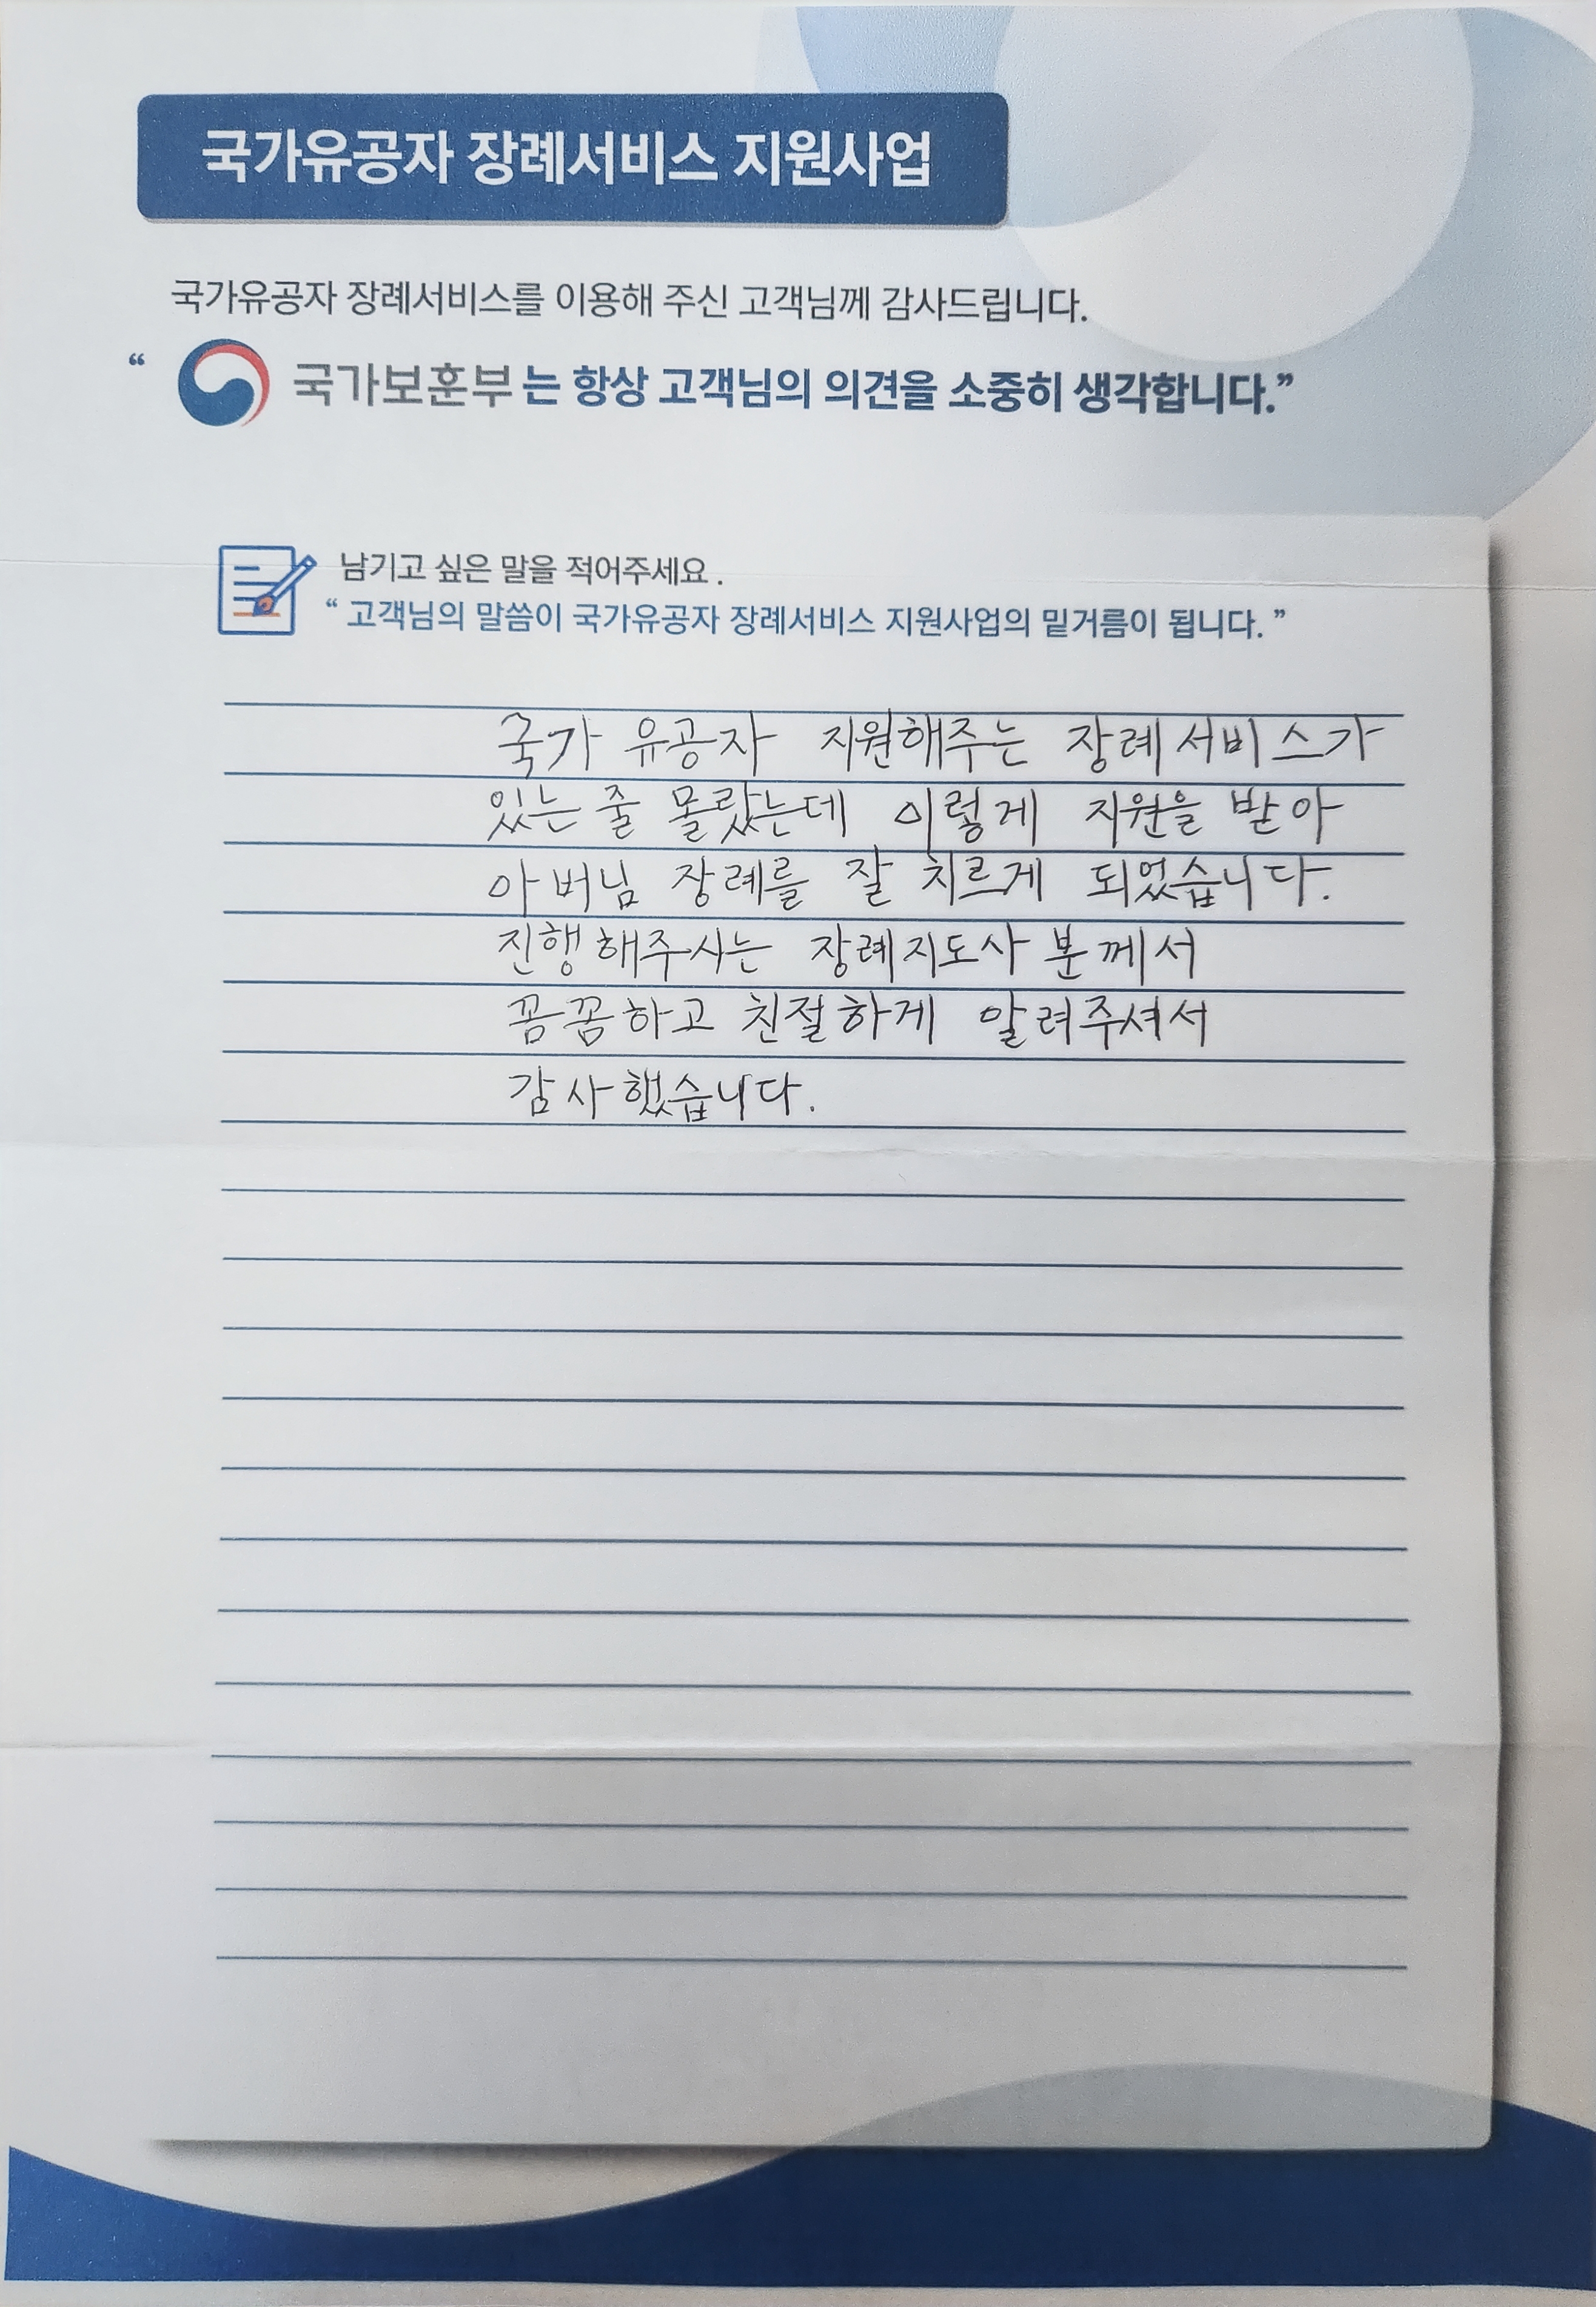 국가유공자 장례서비스 지원사업
국가유공자 장례서비스를 이용해 주신 고객님께 감사드립니다.
“ 국가보훈부 는 항상 고객님의 의견을 소중히 생각합니다.”
남기고 싶은 말을 적어주세요 .
“ 고객님의 말씀이 국가유공자 장례서비스 지원사업의 밑거름이 됩니다. ”
국가 유공자 지원해주는 장례서비스가
있는 줄 몰랐는데 이렇게 지원을 받아
아버님 장례를 잘 치르게 되었습니다.
진행해주시는 장례지도사 분께서
꼼꼼하고 친절하게 알려주셔서
감사했습니다.